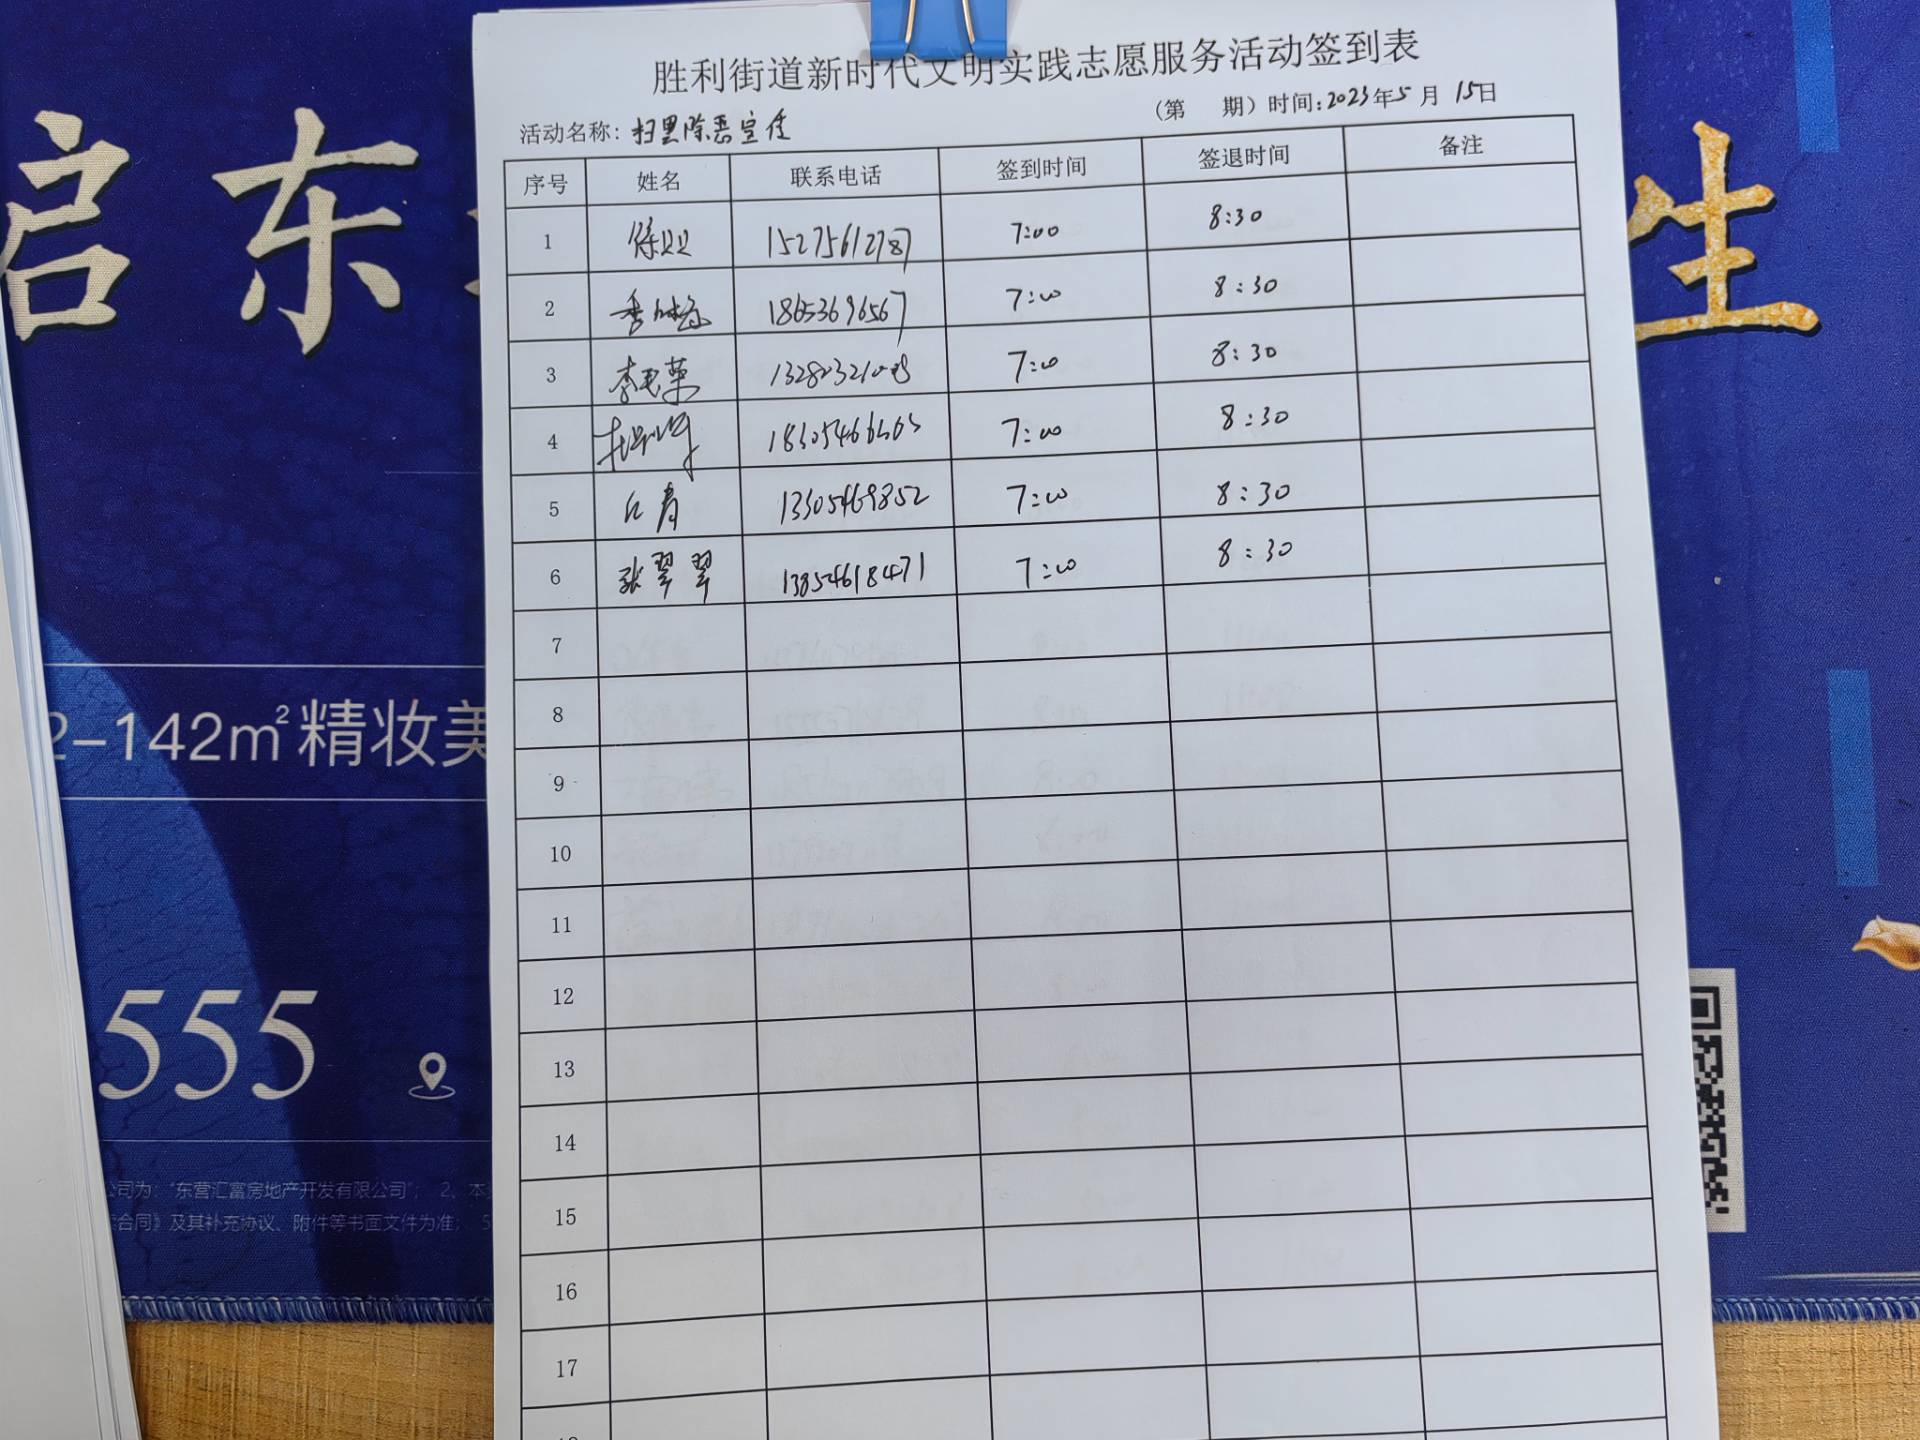 胜利街道新时代文明实践志愿服务活动签到表
(第 期) 时间:2023年5月15日
活动名称: 扫黑除恶宣传
序号 姓名 联系电话 签到时间 签退时间 备注
1 徐双双 15275612787 7:00 8:30
2 18653696567 7:00 8:30
3 李玉荣 7:00 8:30
4 7:00 8:30
5 13305469852 7:00 8:30
6 张翠翠 13854618471 7:00 8:30
7
8
9
10
11
12
13
14
15
16
17
启东
生
2-142㎡精妆美
555
公司为:“东营汇富房地产开发有限公司”; 2、本
合同》及其补充协议、附件等书面文件为准; 5